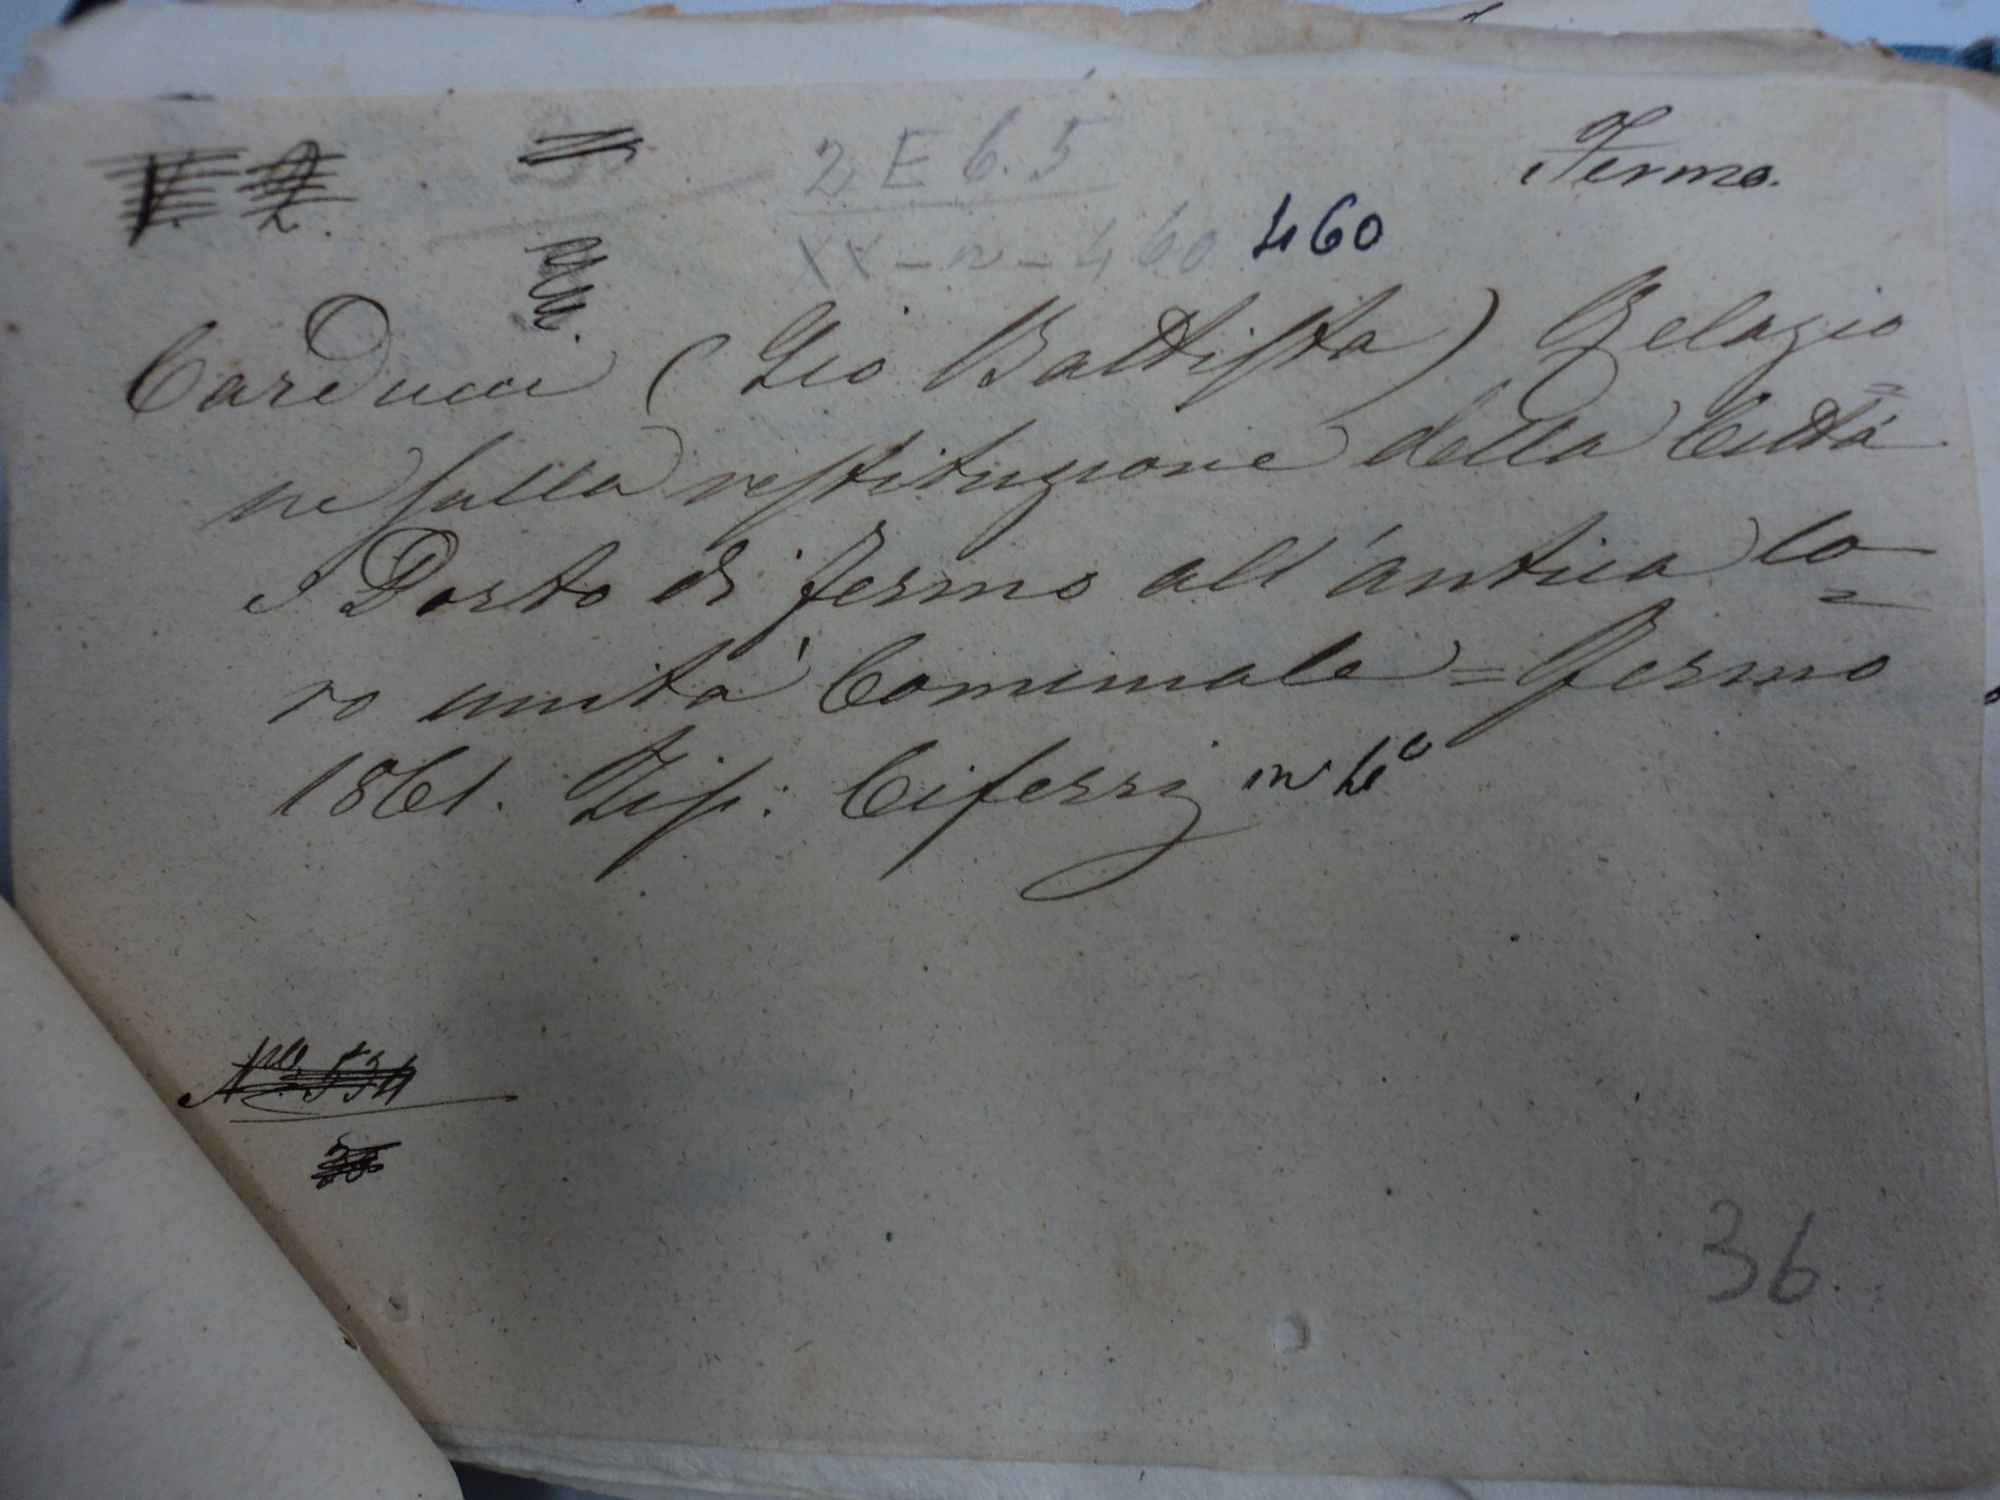 V. 2.
2 E 6.5
Fermo.
XX - n - 460 460
Carducci (Gio Battista) Relazio=
ne sulla restituzione della Città
e Porto di Fermo all'antica lo=
ro unità Comunale = Fermo
1861. Tip: Ciferri in 4º
Nº 534
36